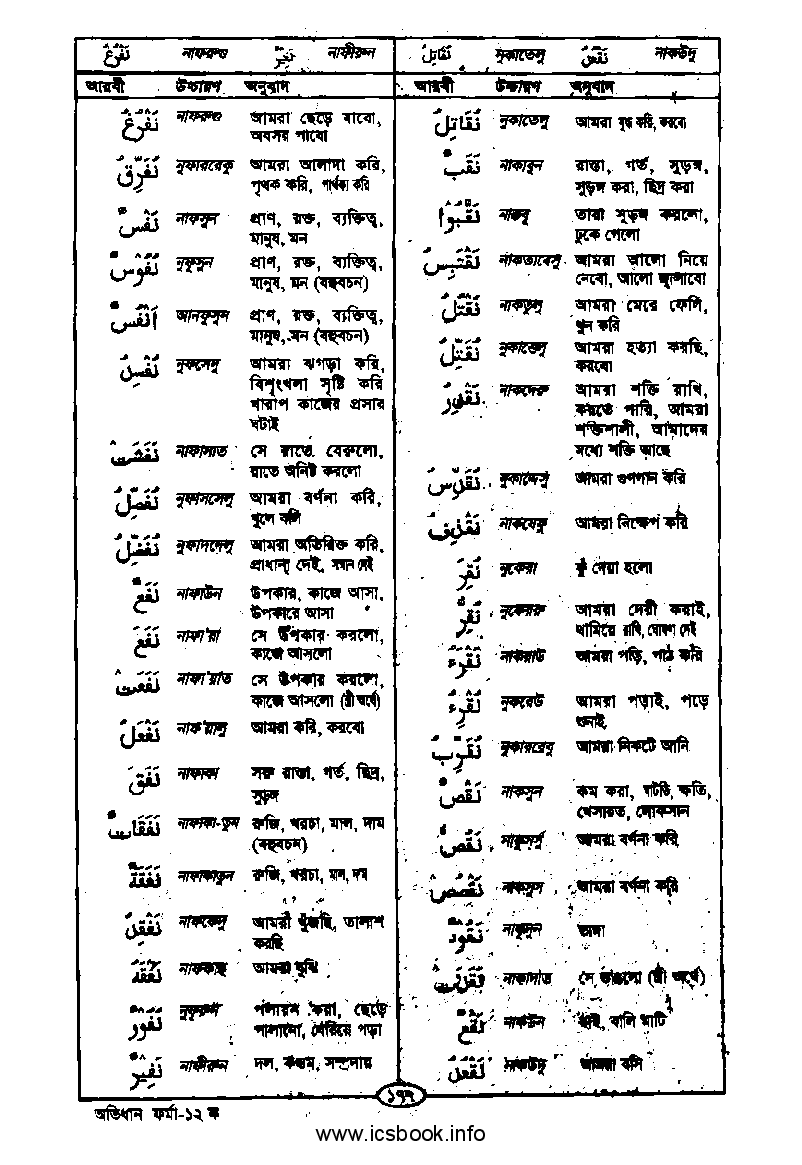 نَفْرُغُ নাফরুগু نَفِيْرٌ নাফীরুন
আরবী উচ্চারণ অনুবাদ
نَفْرُغُ নাফরুগু আমরা ছেড়ে যাবো,
অবসর পাবো
نُفَرِّقُ নুফাররেকু আমরা আলাদা করি,
পৃথক করি, পার্থক্য করি
نَفْسٌ নাফসুন প্রাণ, রক্ত, ব্যক্তিত্ব,
মানুষ, মন
نُفُوْسٌ নুফূসুন প্রাণ, রক্ত, ব্যক্তিত্ব,
মানুষ, মন (বহুবচন)
اَنْفُسٌ আনফুসুন প্রাণ, রক্ত, ব্যক্তিত্ব,
মানুষ, মন (বহুবচন)
نُفْسِدُ নুফসেদু আমরা ঝগড়া করি,
বিশৃংখলা সৃষ্টি করি
খারাপ কাজের প্রসার
ঘটাই
نَفَشَتْ নাফাশাত সে রাতে বেরুলো,
রাতে অনিষ্ট করলো
نُفَصِّلُ নুফাসসেলু আমরা বর্ণনা করি,
খুলে বলি
نُفَضِّلُ নুফাদদেলু আমরা অতিরিক্ত করি,
প্রাধান্য দেই, সম্মান দেই
نَفْعٌ নাফউন উপকার, কাজে আসা,
উপকারে আসা
نَفَعَ নাফা'য়া সে উপকার করলো,
কাজে আসলো
نَفَعَتْ নাফা'য়াত সে উপকার করলো,
কাজে আসলো (স্ত্রী অর্থে)
نَفْعَلُ নাফ'য়ালু আমরা করি, করবো
نَفَقَ নাফাকা সরু রাস্তা, গর্ত, ছিদ্র,
সুড়ঙ্গ
نَفَقَاتٌ নাফাকা-তুন রুজি, খরচা, মাল, দাম
(বহুবচন)
نَفَقَةٌ নাফাকাতুন রুজি, খরচা, মাল, দাম
نَفْقِدُ নাফকেদু আমরা খুঁজছি, তালাশ
করছি
نَفْقَهُ নাফকাহু আমরা বুঝি
نُفُوْرٌ নুফূরুন পলায়ন করা, ছেড়ে
পালানো, বেরিয়ে পড়া
نَفِيْرٌ নাফীরুন দল, কওম, সম্প্রদায়
نُقَاتِلُ নুকাতেলু نَقْصٌ নাকউদু
আরবী উচ্চারণ অনুবাদ
نُقَاتِلُ নুকাতেলু আমরা যুদ্ধ করি, করবো
نَقْبٌ নাকাবুন রাস্তা, গর্ত, সুড়ঙ্গ,
সুড়ঙ্গ করা, ছিদ্র করা
نَقَبُوْا নাকাবূ তারা সুড়ঙ্গ করলো,
ঢুকে গেলো
نَقْتَبِسُ নাকতাবেসু আমরা আলো নিয়ে
নেবো, আলো জ্বালাবো
نَقْتُلُ নাকতুলু আমরা মেরে ফেলি,
খুন করি
نُقَتِّلُ নুকাত্তেলু আমরা হত্যা করছি,
করবো
نَقْدِرُ নাকদেরু আমরা শক্তি রাখি,
করতে পারি, আমরা
শক্তিশালী, আমাদের
মধ্যে শক্তি আছে
نُقَدِّسُ নুকাদ্দেসু আমরা গুণগান করি
نَقْذِفُ নাকযেফু আমরা নিক্ষেপ করি
نُقِرَ নুকেরা ফুঁ দেয়া হলো
نُقِرُّ নুকেররু আমরা দেরী করাই,
থামিয়ে রাখি, ঘোষণা দেই
نَقْرَءُ নাকরাউ আমরা পড়ি, পাঠ করি
نُقْرِءُ নুকরেউ আমরা পড়াই, পড়ে
শুনাই
نُقَرِّبُ নুকাররেবু আমরা নিকটে আনি
نَقْصٌ নাকসুন কম করা, ঘাটতি, ক্ষতি,
খেসারত, লোকসান
نَقُصُّ নাকুসসু আমরা বর্ণনা করি
نَقْصُصْ নাকসুস আমরা বর্ণনা করি
نَقْضٌ নাকসুন ভাঙ্গা
نَقَضَتْ নাকাদাত সে ভাঙলো (স্ত্রী অর্থে)
نَقْعٌ নাকউন ছাই, বালি মাটি
نَقْعُدُ নাকউদু আমরা বসি
১৭৭
অভিধান ফর্মা-১২ ক
www.icsbook.info